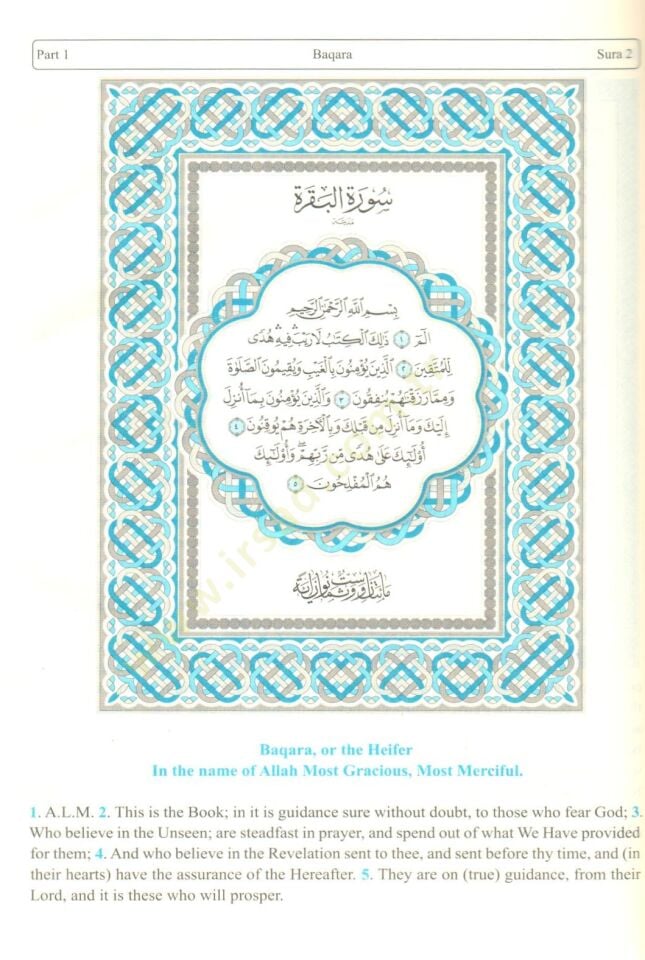 Part 1 Baqara Sura 2
سُورَةُ البَقَرَةِ
بِسْمِ اللَّهِ الرَّحْمَٰنِ الرَّحِيمِ
الٓمٓ ١ ذَٰلِكَ الْكِتَٰبُ لَا رَيْبَ ۛ فِيهِ ۛ هُدًى
لِّلْمُتَّقِينَ ٢ الَّذِينَ يُؤْمِنُونَ بِالْغَيْبِ وَيُقِيمُونَ الصَّلَوٰةَ
وَمِمَّا رَزَقْنَٰهُمْ يُنفِقُونَ ٣ وَالَّذِينَ يُؤْمِنُونَ بِمَا أُنزِلَ
إِلَيْكَ وَمَا أُنزِلَ مِن قَبْلِكَ وَبِالْآخِرَةِ هُمْ يُوقِنُونَ ٤
أُولَٰئِكَ عَلَىٰ هُدًى مِّن رَّبِّهِمْ ۖ وَأُولَٰئِكَ
هُمُ الْمُفْلِحُونَ ٥
وآياتها مائتان وست وثمانون
Baqara, or the Heifer
In the name of Allah Most Gracious, Most Merciful.
1. A.L.M. 2. This is the Book; in it is guidance sure without doubt, to those who fear God; 3.
Who believe in the Unseen; are steadfast in prayer, and spend out of what We Have provided
for them; 4. And who believe in the Revelation sent to thee, and sent before thy time, and (in
their hearts) have the assurance of the Hereafter. 5. They are on (true) guidance, from their
Lord, and it is these who will prosper.